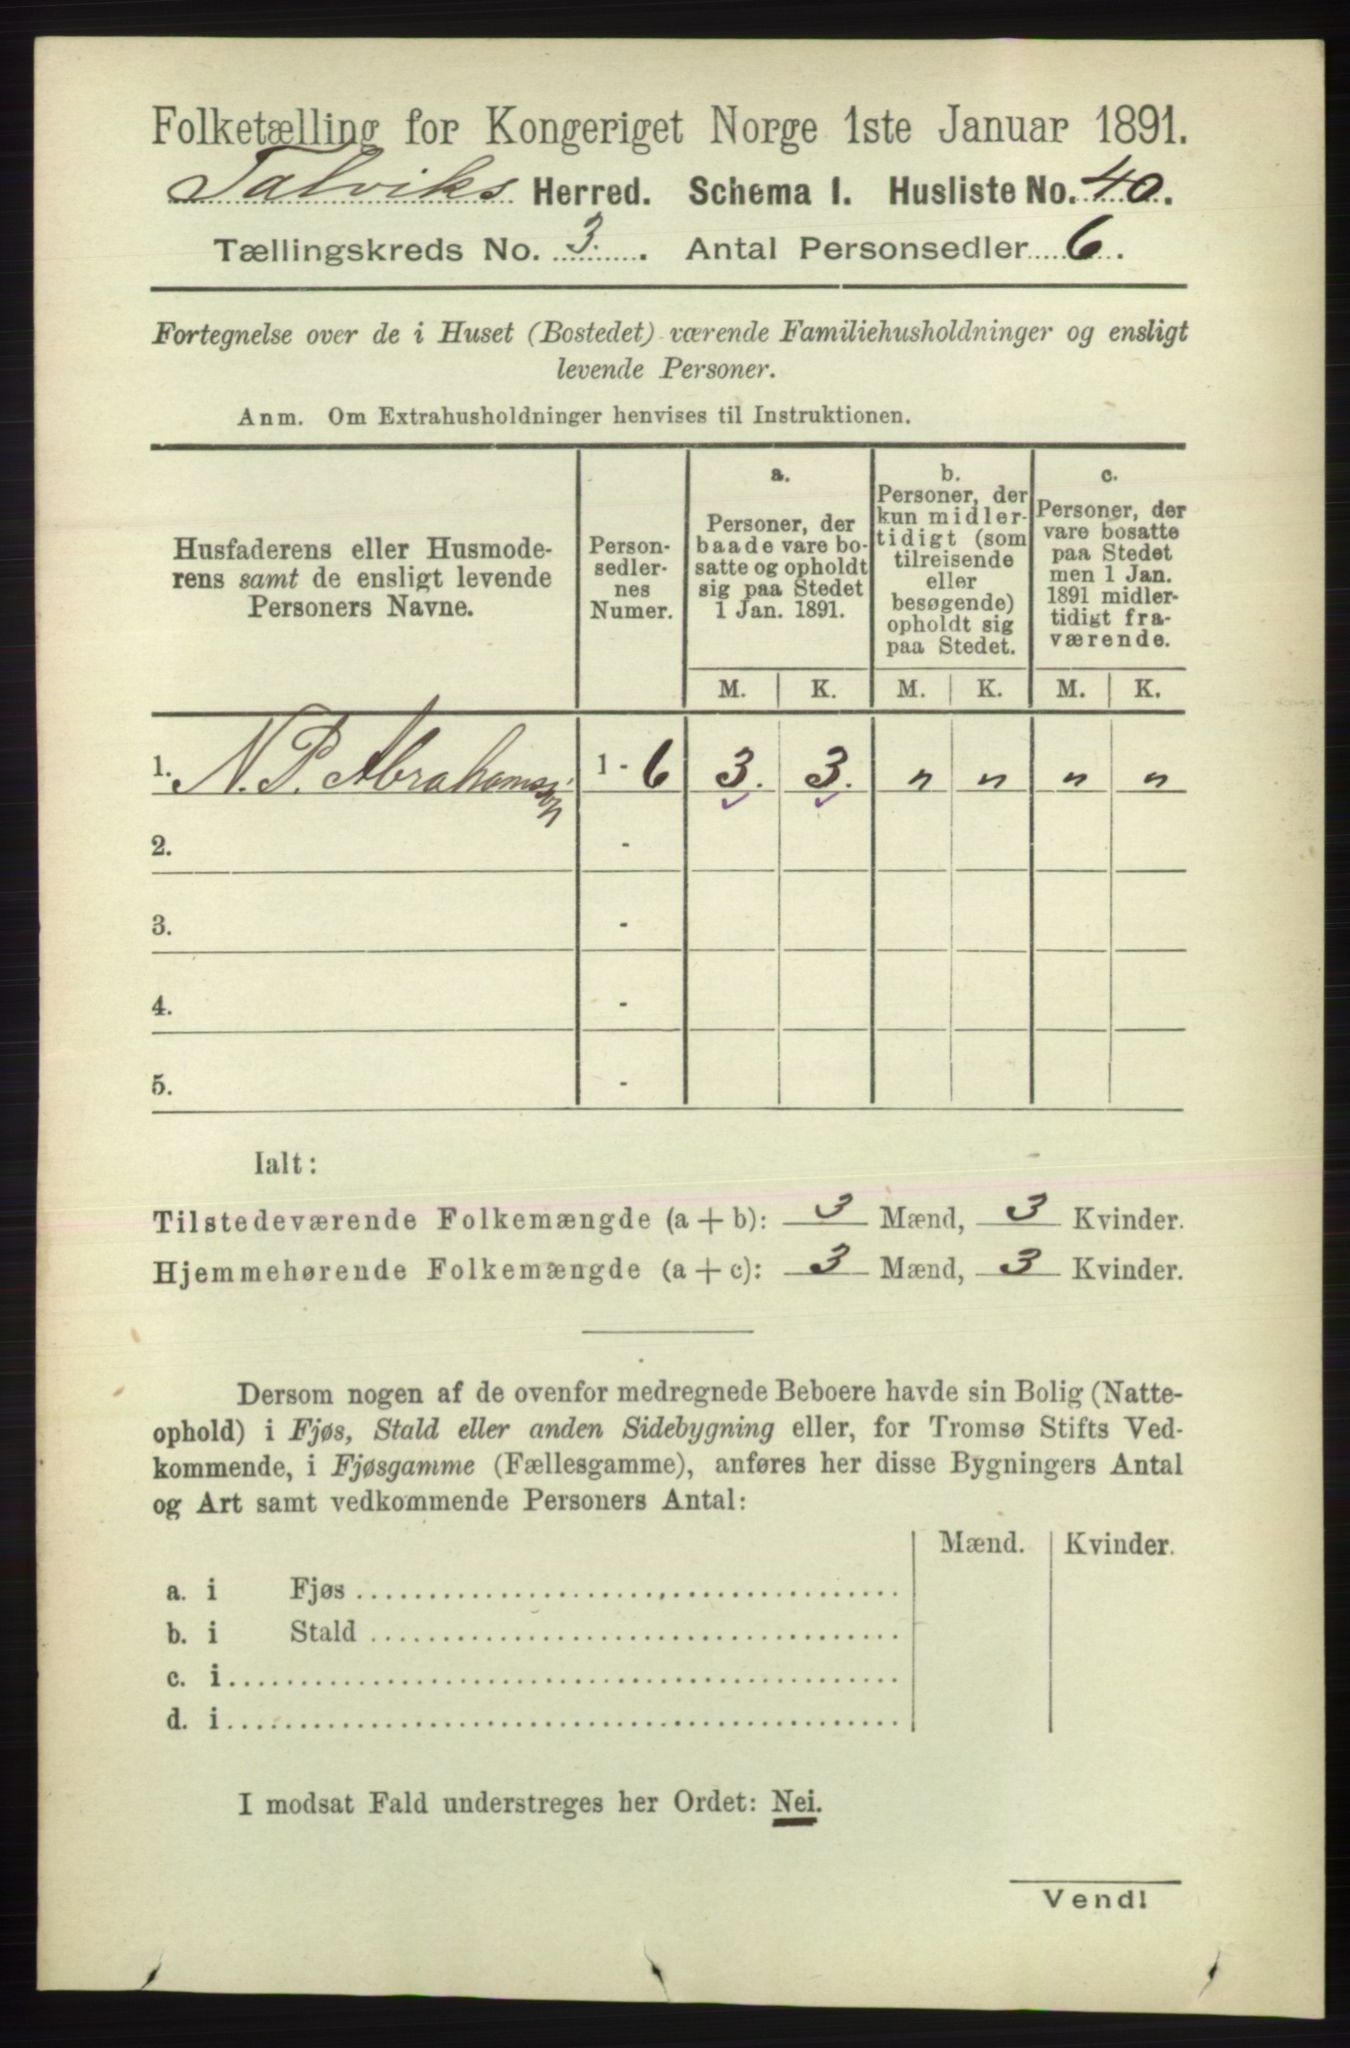 Folketælling for Kongeriget Norge 1ste Januar 1891.
Talviks Herred. Schema 1. Husliste No. 40.
Tællingskreds No. 3. Antal Personsedler 6.
Fortegnelse over de i Huset (Bostedet) værende Familiehusholdninger og ensligt
levende Personer.
Anm. Om Extrahusholdninger henvises til Instruktionen.
Husfaderens eller Husmode-
rens samt de ensligt levende
Personers Navne.
Person-
sedler-
nes
Numer.
a.
Personer, der
baade vare bo-
satte og opholdt
sig paa Stedet
1 Jan. 1891.
b.
Personer, der
kun midler-
tidigt (som
tilreisende
eller
besøgende)
opholdt sig
paa Stedet.
c.
Personer, der
vare bosatte
paa Stedet
men 1 Jan.
1891 midler-
tidigt fra-
værende.
M. K. M. K. M. K.
1. N. P. Abrahamssøn 1 - 6 3. 3. " " " "
2. -
3. -
4. -
5. -
Ialt:
Tilstedeværende Folkemængde (a + b): 3 Mænd, 3 Kvinder.
Hjemmehørende Folkemængde (a + c): 3 Mænd, 3 Kvinder.
Dersom nogen af de ovenfor medregnede Beboere havde sin Bolig (Natte-
ophold) i Fjøs, Stald eller anden Sidebygning eller, for Tromsø Stifts Ved-
kommende, i Fjøsgamme (Fællesgamme), anføres her disse Bygningers Antal
og Art samt vedkommende Personers Antal:
Mænd. Kvinder.
a. i Fjøs
b. i Stald
c. i
d. i
I modsat Fald understreges her Ordet: Nei.
Vend!